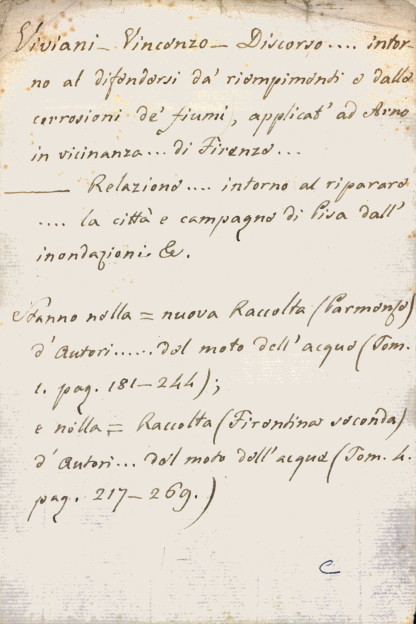 Viviani – Vincenzo – Discorso .... intor-
no al difendersi da' riempimenti e dalle
corrosioni de' fiumi, applicat' ad Arno
in vicinanza ... di Firenze ...
——— Relazione .... intorno al riparare
.... la città e campagne di Pisa dall'
inondazioni. &.
Stanno nella = nuova Raccolta (Parmense)
d'Autori ...... del moto dell'acque (Tom.
1. pag. 181–244);
e nella = Raccolta (Fiorentina seconda)
d'Autori ... del moto dell'acque (Tom. 4.
pag. 217–269.)
C